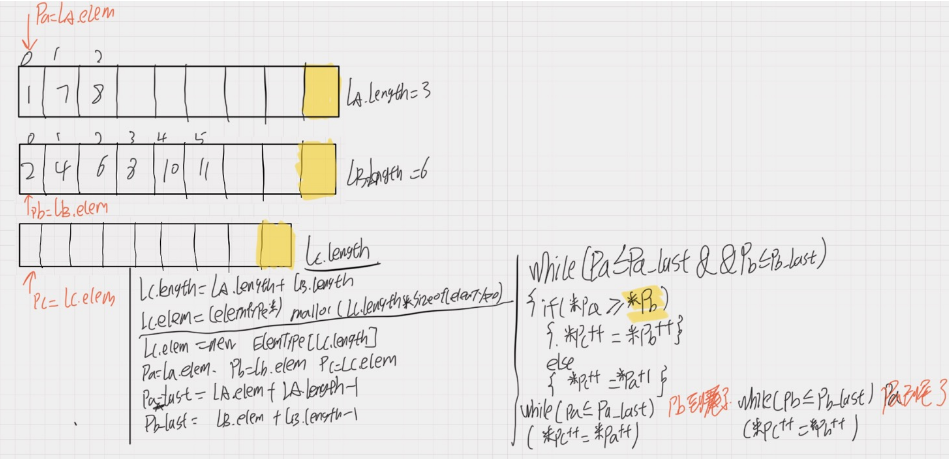 Pa=LA.elem
0 1 2
1 7 8
LA.length=3
0 1 2 3 4 5
2 4 6 8 10 11
LB.length=6
Pb=LB.elem
Lc.length
Pc=Lc.elem
Lc.length=LA.length+LB.length
Lc.elem=(elemtype*) malloc(Lc.length*sizeof(elemtype))
Lc.elem=new ElemType[Lc.length]
Pa=La.elem. Pb=Lb.elem Pc=Lc.elem
Pa_last=LA.elem+LA.length-1
Pb_last= LB.elem+LB.length-1
while(Pa≤Pa_last && Pb≤Pb_last)
{ if(*Pa≥*Pb)
{ *Pc++=*Pb++}
else
{ *Pc++=*Pa++}
while(Pa≤Pa_last) Pb到尾了
(*Pc++=*Pa++)
while(Pb≤Pb_last) Pa到尾了
(*Pc++=*Pb++)